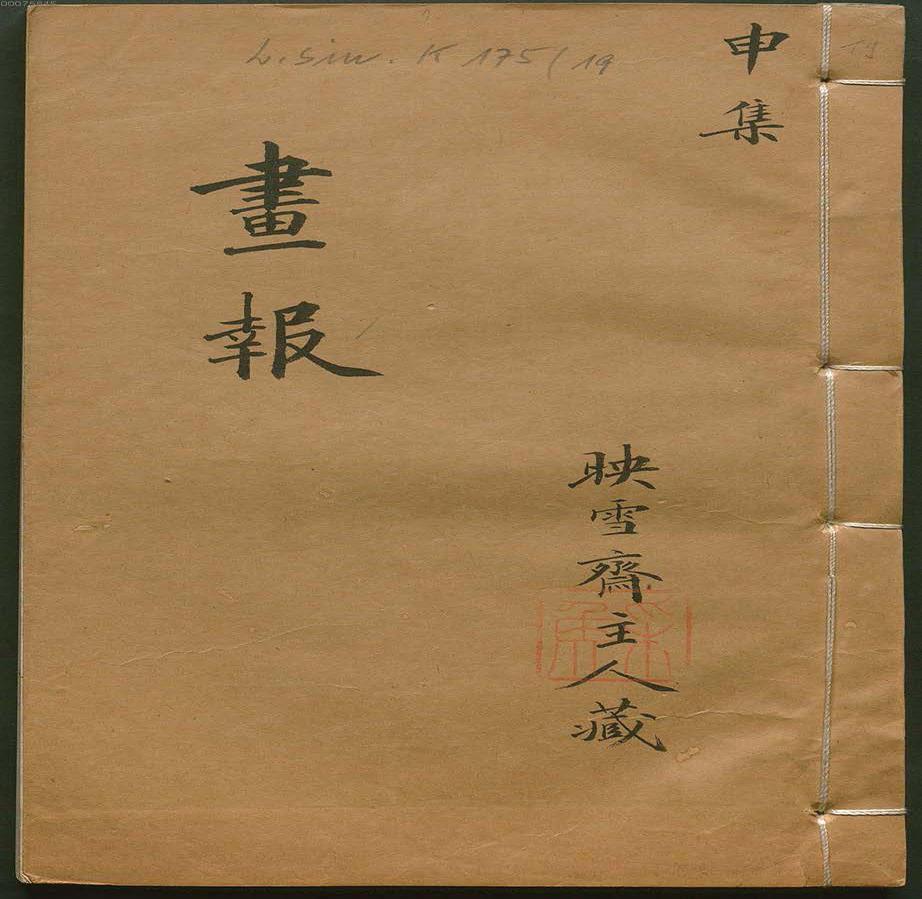 L. sin. K 175/19
申集
畫報
映雪齋主人藏
19